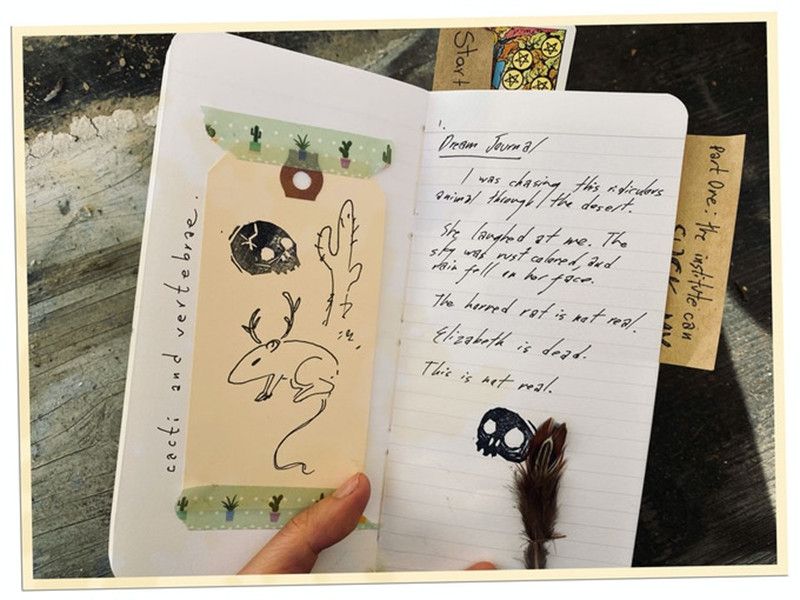 cacti and vertebrae.
Start
1.
Dream Journal
I was chasing this ridiculous
animal through the desert.
She laughed at me. The
sky was rust colored, and
rain fell on her face.
The horned rat is not real.
Elizabeth is dead.
This is not real.
Part One: the institute can